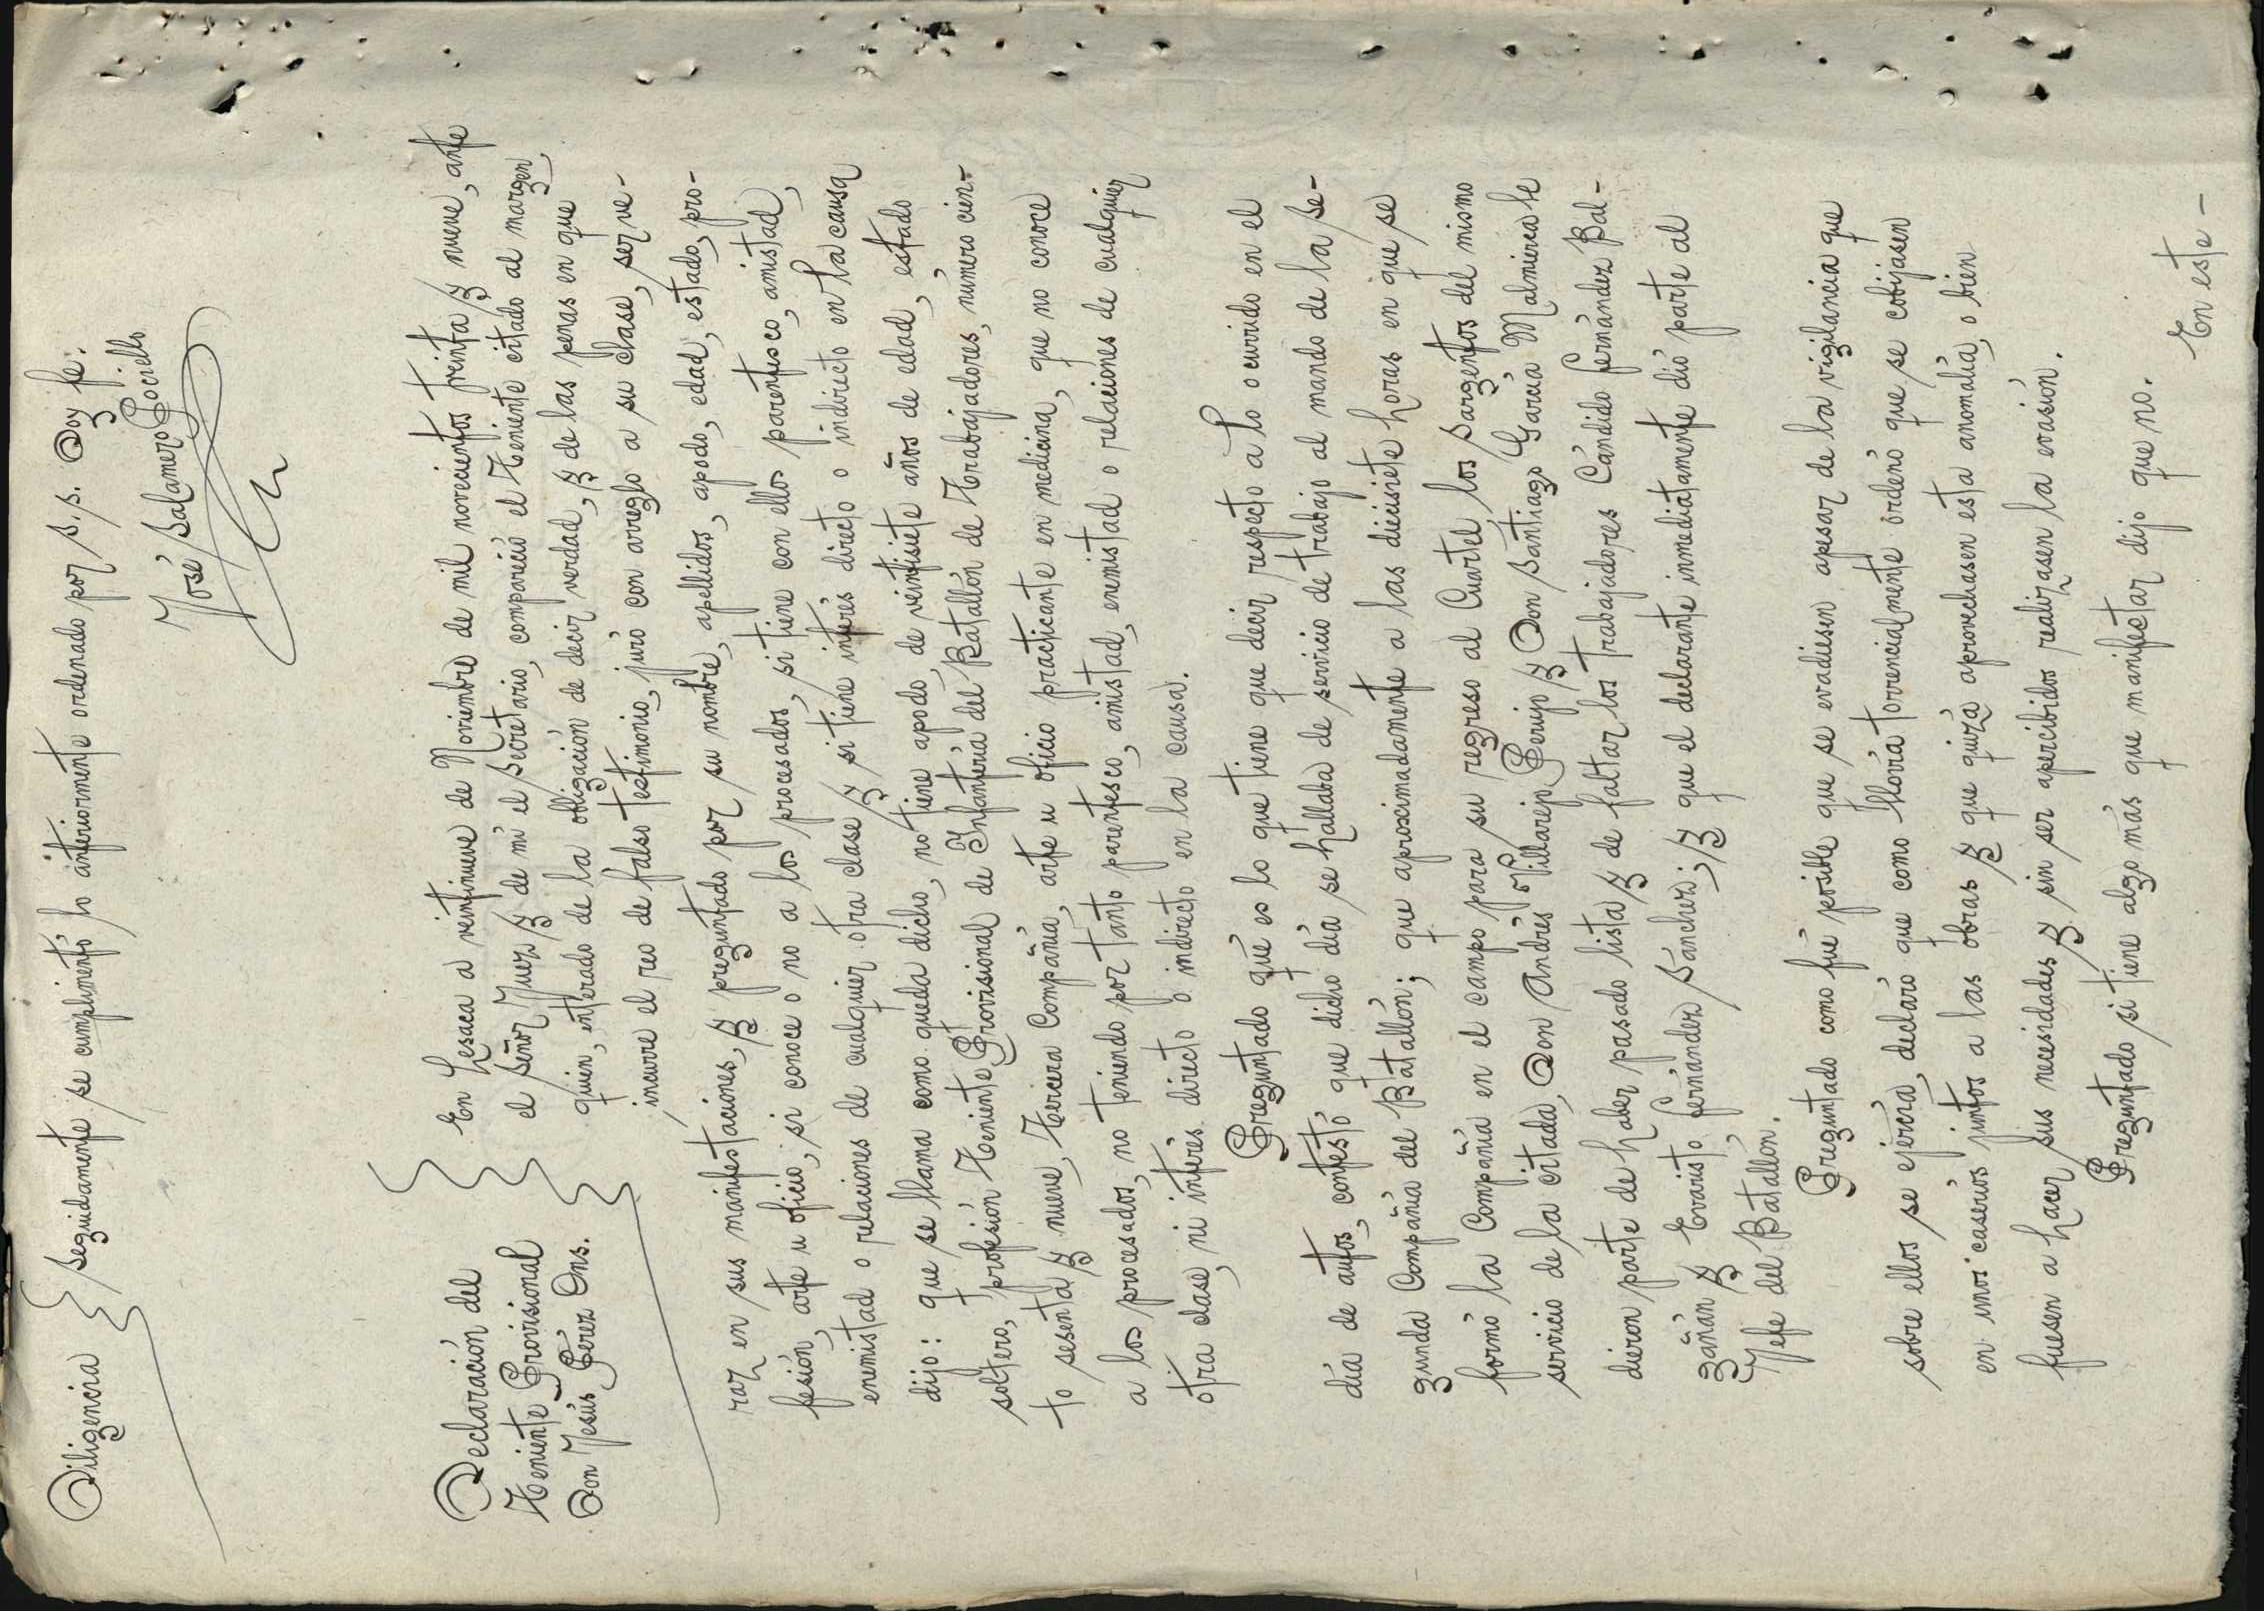 Diligencia Seguidamente se cumplimentó lo anteriormente ordenado por S.S. Doy fe.
José Salamero Pociello
Declaración del
Teniente Provisional
Don Jesús Pérez Ons.
En Lesaca a veintinueve de Noviembre de mil novecientos treinta y nueve, ante
el Señor Juez y de mí el Secretario, compareció el Teniente citado al margen,
quien, enterado de la obligación de decir verdad, y de las penas en que
incurre el reo de falso testimonio, juró con arreglo a su clase, ser ve-
raz en sus manifestaciones, y preguntado por su nombre, apellidos, apodo, edad, estado, pro-
fesión, arte u oficio, si conoce o no a los procesados, si tiene con ellos parentesco, amistad,
enemistad o relaciones de cualquier otra clase y si tiene interés directo o indirecto en la causa
dijo: que se llama como queda dicho, no tiene apodo, de veintisiete años de edad, estado
soltero, profesión Teniente Provisional de Infantería del Batallón de Trabajadores, número cien-
to sesenta y nueve, Tercera Compañía, arte u oficio practicante en medicina, que no conoce
a los procesados, no teniendo por tanto parentesco, amistad, enemistad o relaciones de cualquier
otra clase, ni interés directo o indirecto en la causa.
Preguntado qué es lo que tiene que decir respecto a lo ocurrido en el
día de autos, contestó que dicho día se hallaba de servicio de trabajo al mando de la Se-
gunda Compañía del Batallón; que aproximadamente a las diecisiete horas en que se
formó la Compañía en el campo para su regreso al Cuartel los Sargentos del mismo
servicio de la citada, Don Andrés Villarejo Perujo y Don Santiago García Malmierca le
dieron parte de haber pasado lista y de faltar los trabajadores Cándido Fernández Bal-
gañán y Evaristo Fernández Sánchez; y que el declarante inmediatamente dió parte al
Jefe del Batallón.
Preguntado como fué posible que se evadiesen apesar de la vigilancia que
sobre ellos se ejercía, declaró que como llovía torrencialmente ordenó que se cobijasen
en unos caseríos juntos a las obras y que quizá aprovechasen esta anomalía, o bien
fuesen a hacer sus necesidades y sin ser apercibidos realizasen la evasión.
Preguntado si tiene algo más que manifectar dijo que no.
En este-